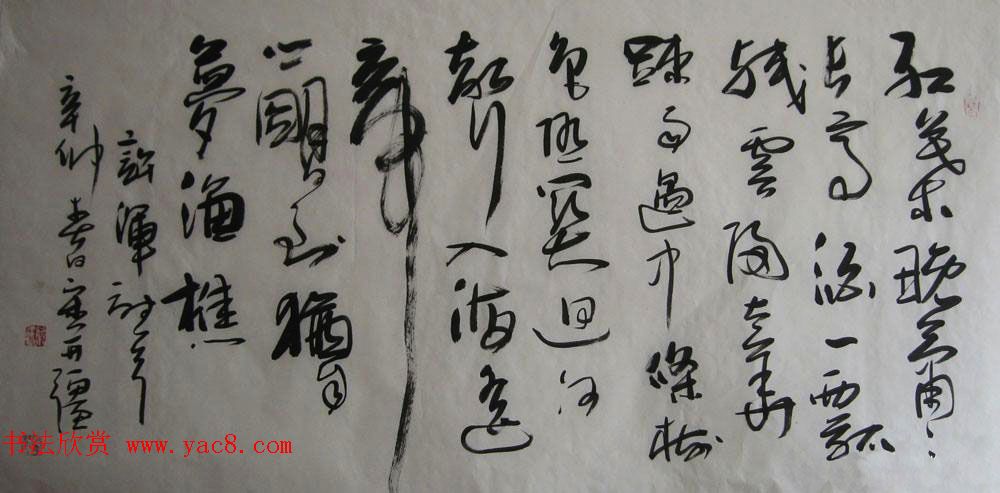 紅葉晚蕭々
長亭酒一瓢
殘雲歸太華
疎雨過中條樹
色隨關迥河
聲入海遙
帝
鄉明日到猶自
夢漁樵
許渾詩一首
辛卯春日
书法欣赏 www.yac8.com